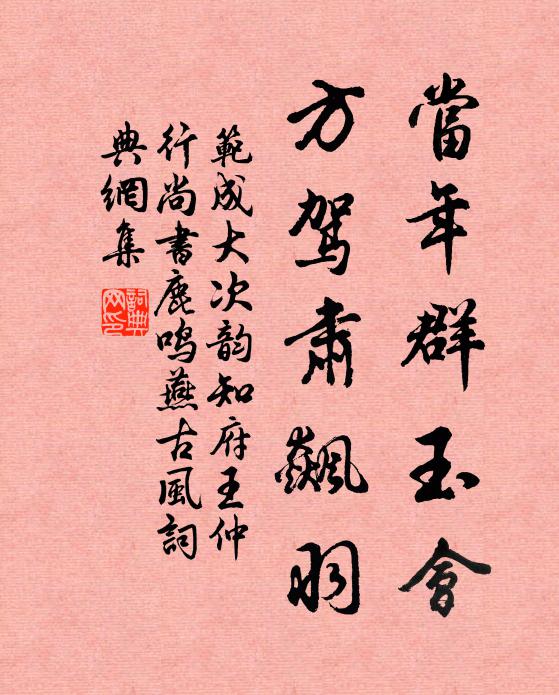 當年群玉會
方駕肅飆羽
範成大次韵知府王仲
行尚書鹿鸣燕古風詞
典網集
詞典网印